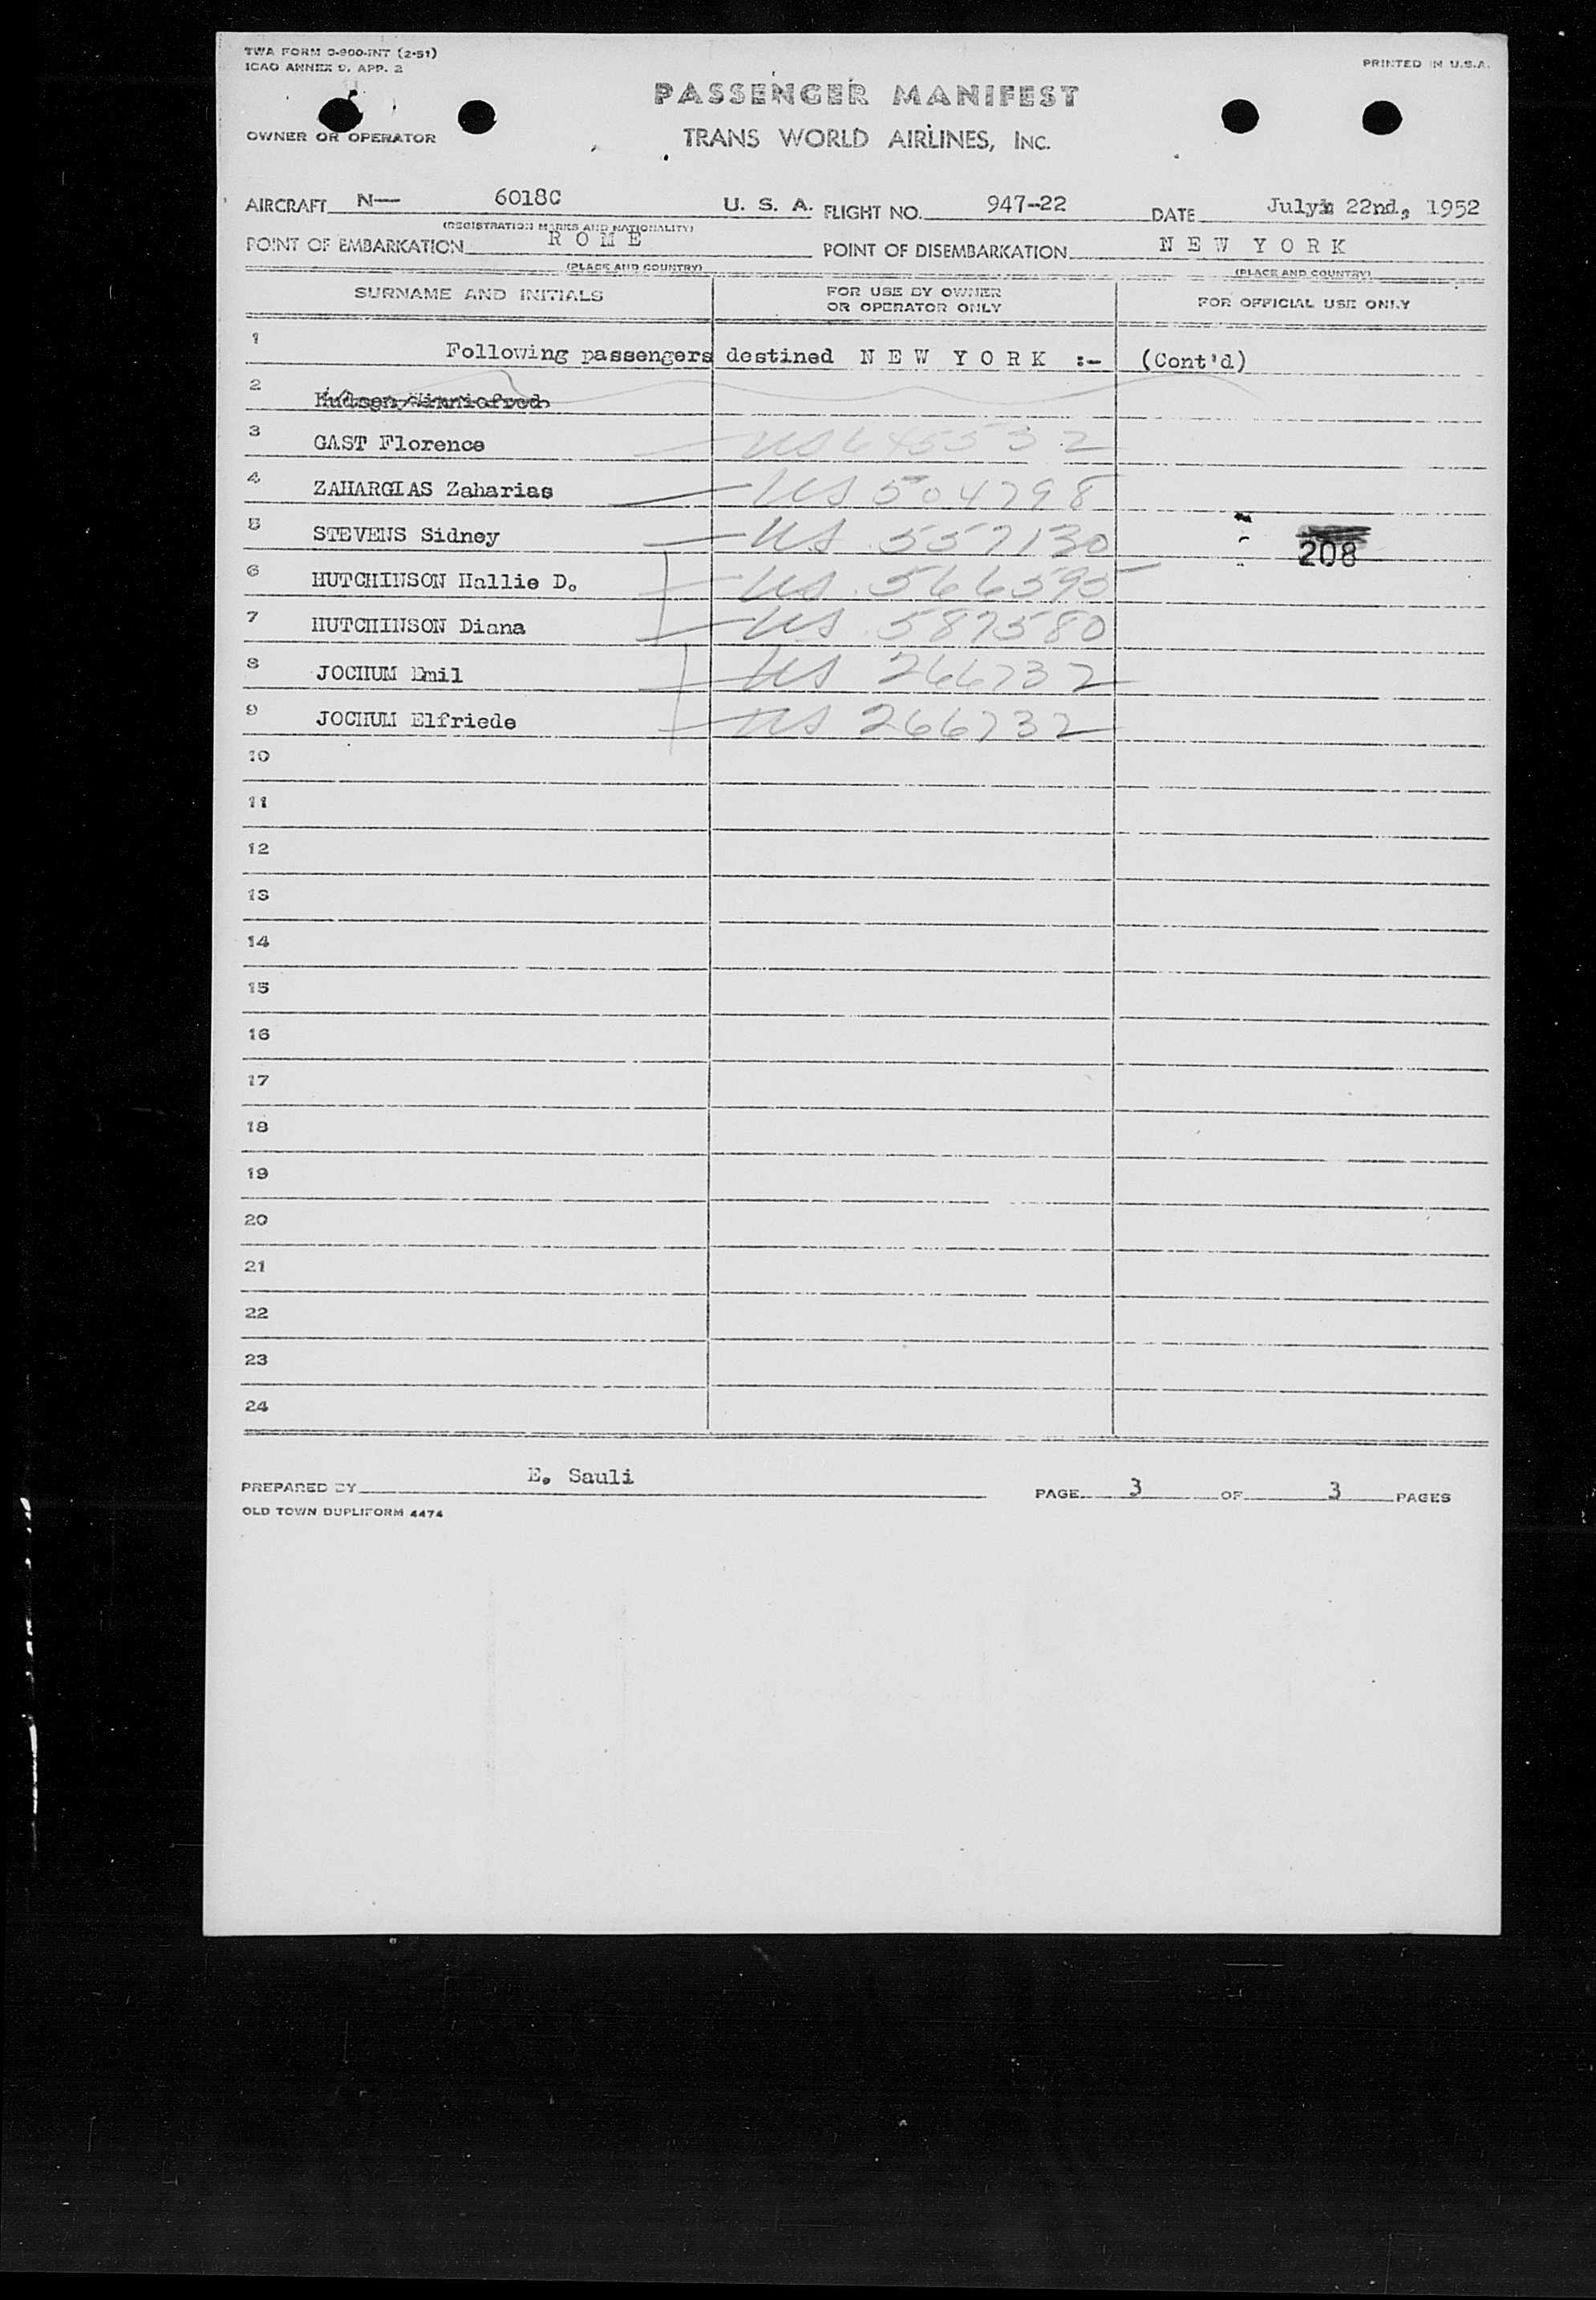 TWA FORM O-900-INT (2-51)
ICAO ANNEX 9, APP. 2
PRINTED IN U.S.A.
PASSENGER MANIFEST
OWNER OR OPERATOR
TRANS WORLD AIRLINES, INC.
AIRCRAFT N— 6018C U. S. A. FLIGHT NO. 947-22 DATE July 22nd, 1952
(REGISTRATION MARKS AND NATIONALITY)
POINT OF EMBARKATION R O M E POINT OF DISEMBARKATION N E W Y O R K
(PLACE AND COUNTRY) (PLACE AND COUNTRY)
SURNAME AND INITIALS FOR USE BY OWNER OR OPERATOR ONLY FOR OFFICIAL USE ONLY
1 Following passengers destined N E W Y O R K :- (Cont'd)
2 Hudson
3 GAST Florence US 645532
4 ZAHARGIAS Zaharias US 504798
5 STEVENS Sidney US 557130 208
6 HUTCHINSON Hallie D. US 566595
7 HUTCHINSON Diana US 587580
8 JOCHUM Emil US 266732
9 JOCHUM Elfriede US 266732
10
11
12
13
14
15
16
17
18
19
20
21
22
23
24
PREPARED BY E. Sauli PAGE 3 OF 3 PAGES
OLD TOWN DUPLIFORM 4474